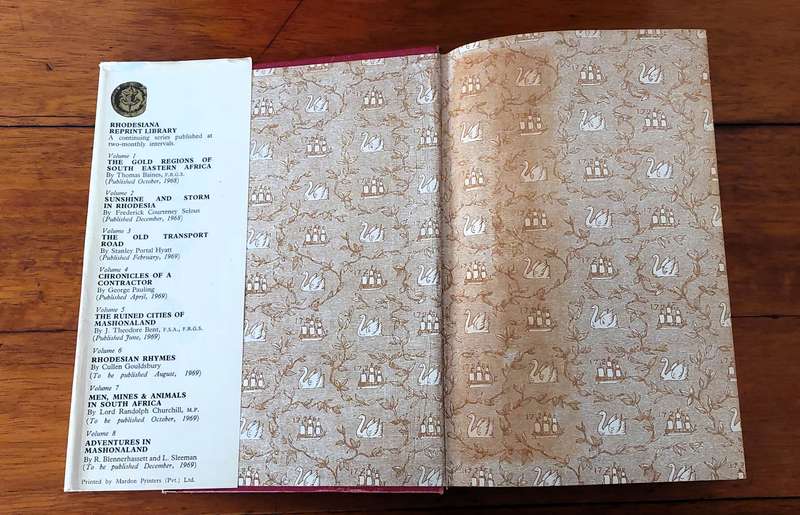 RHODESIANA
REPRINT LIBRARY
A continuing series published at
two-monthly intervals.
Volume 1
THE GOLD REGIONS OF
SOUTH EASTERN AFRICA
By Thomas Baines, F.R.G.S.
(Published October, 1968)
Volume 2
SUNSHINE AND STORM
IN RHODESIA
By Frederick Courteney Selous
(Published December, 1968)
Volume 3
THE OLD TRANSPORT
ROAD
By Stanley Portal Hyatt
(Published February, 1969)
Volume 4
CHRONICLES OF A
CONTRACTOR
By George Pauling
(Published April, 1969)
Volume 5
THE RUINED CITIES OF
MASHONALAND
By J. Theodore Bent, F.S.A., F.R.G.S.
(Published June, 1969)
Volume 6
RHODESIAN RHYMES
By Cullen Gouldsbury
(To be published August, 1969)
Volume 7
MEN, MINES & ANIMALS
IN SOUTH AFRICA
By Lord Randolph Churchill, M.P.
(To be published October, 1969)
Volume 8
ADVENTURES IN
MASHONALAND
By R. Blennerhassett and L. Sleeman
(To be published December, 1969)
Printed by Mardon Printers (Pvt.) Ltd.